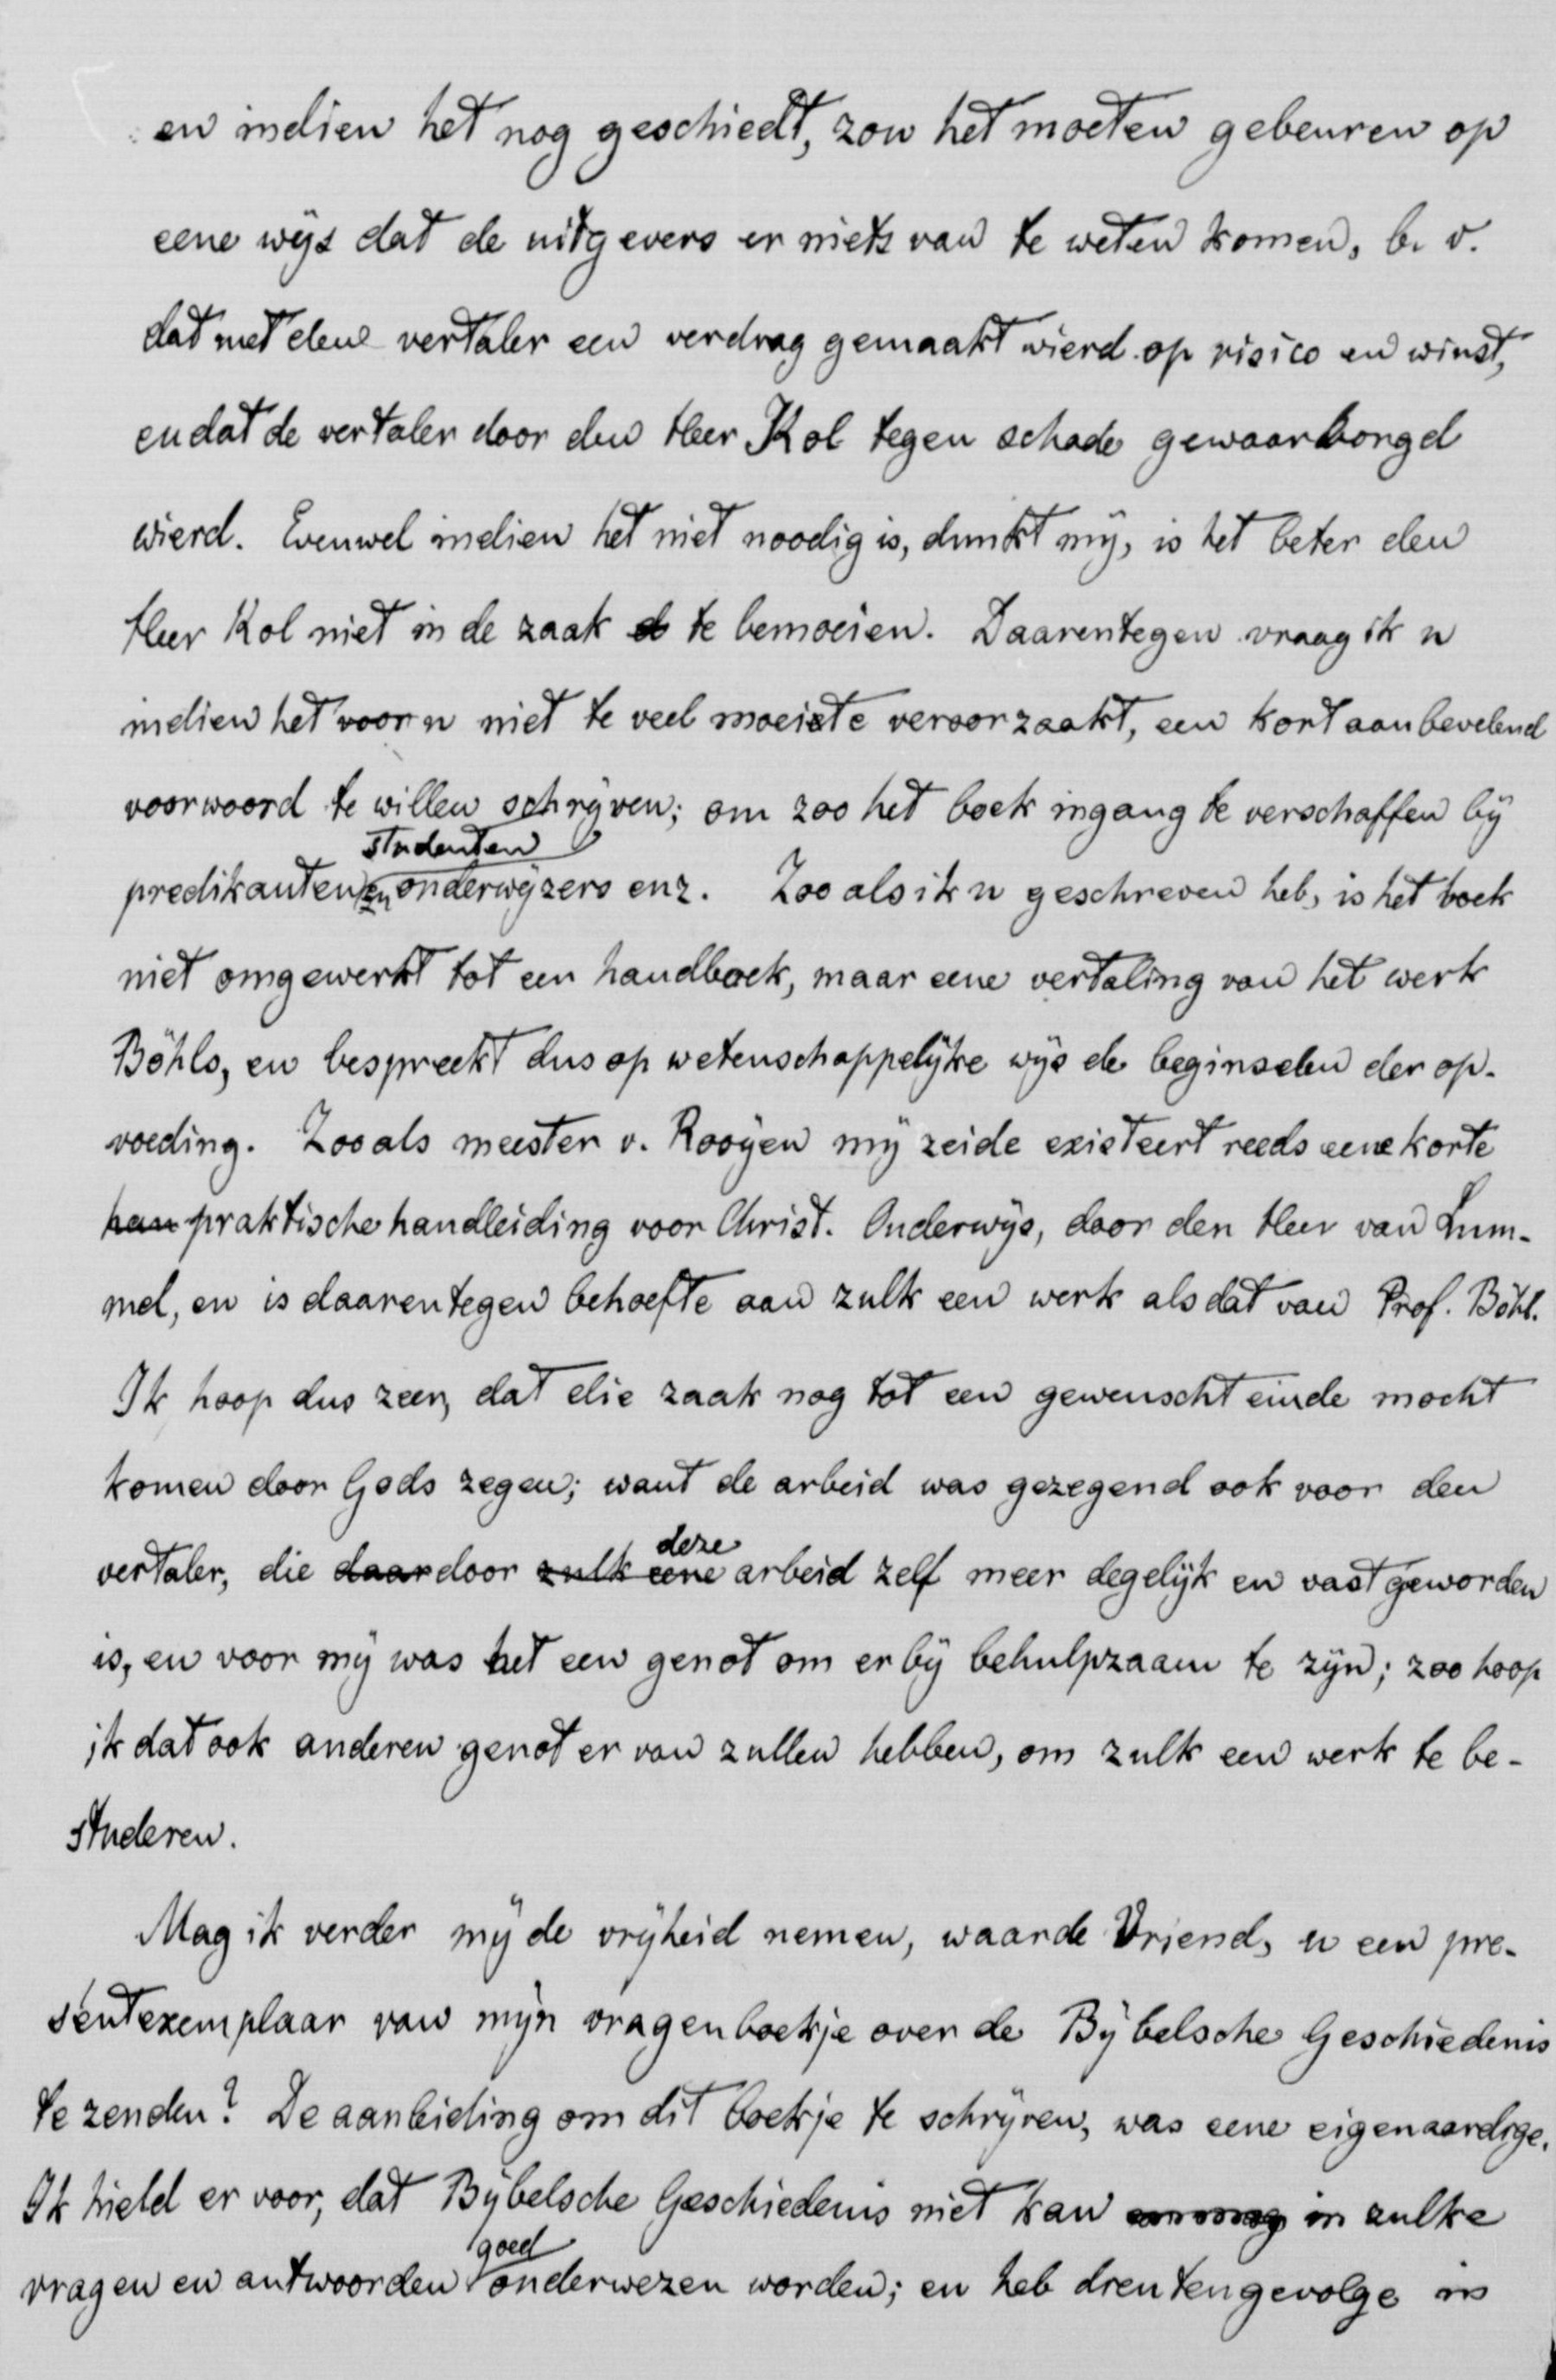 en indien het nog geschiedt, zou het moeten gebeuren op
eene wijs dat de uitgevers er niets van te weten komen, b. v.
dat met den vertaler een verdrag gemaakt wierd op risico en winst,
en dat de vertaler door den Heer Kol tegen schade gewaarborgd
wierd. Evenwel indien het niet noodig is, dunkt mij, is het beter den
Heer Kol niet in de zaak te bemoeien. Daarentegen vraag ik u
indien het voor u niet te veel moeiete veroorzaakt, een kort aanbevelend
voorwoord te willen schrijven; om zoo het boek ingang te verschaffen bij
studenten
predikanten en onderwijzers enz. Zoo als ik u geschreven heb, is het boek
niet omgewerkt tot een handboek, maar eene vertaling van het werk
Böhls, en bespreekt dus op wetenschappelijke wijs de beginselen der op-
voeding. Zooals meester v. Rooijen mij zeide existeert reeds eene korte
han praktische handleiding voor Christ. Onderwijs, door den Heer van Lum-
mel, en is daarentegen behoefte aan zulk een werk als dat van Prof. Böhl.
Ik hoop dus zeer, dat die zaak nog tot een gewenscht einde mocht
komen door Gods zegen; want de arbeid was gezegend ook voor den
deze
vertaler, die daardoor zulk eene arbeid zelf meer degelijk en vast geworden
is, en voor mij was het een genot om er bij behulpzaam te zijn; zoo hoop
ik dat ook anderen genot er van zullen hebben, om zulk een werk te be-
studeren.
Mag ik verder mij de vrijheid nemen, waarde Vriend, u een pre-
sentexemplaar van mijn vragenboekje over de Bijbelsche Geschiedenis
te zenden? De aanbieding om dit boekje te schrijven, was eene eigenaardige.
Ik hield er voor, dat Bijbelsche Geschiedenis niet kan in zulke
goed
vragen en antwoorden onderwezen worden; en heb dientengevolge in